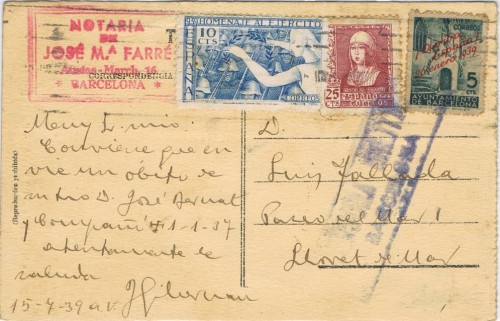 NOTARIA
DE
JOSÉ M.ª FARRÉ
Ausias-March, 16
BARCELONA
CORRESPONDENCIA
HOMENAJE AL EJERCITO
10
CTS
ESPAÑA
CORREOS
25
CTS
CORREOS
CORREOS
5
CTS
AYUNTAMIENTO DE BARCELONA
Enero 1939
(Reproducción prohibida)
Muy Sr. mio.
Conviene que en
vie un óbito de
D. José
y Compañ 1-1-37
atentamente de
saluda
15-4-39 a.V.
D.
Luis
Paseo del Mar 1
Lloret de Mar